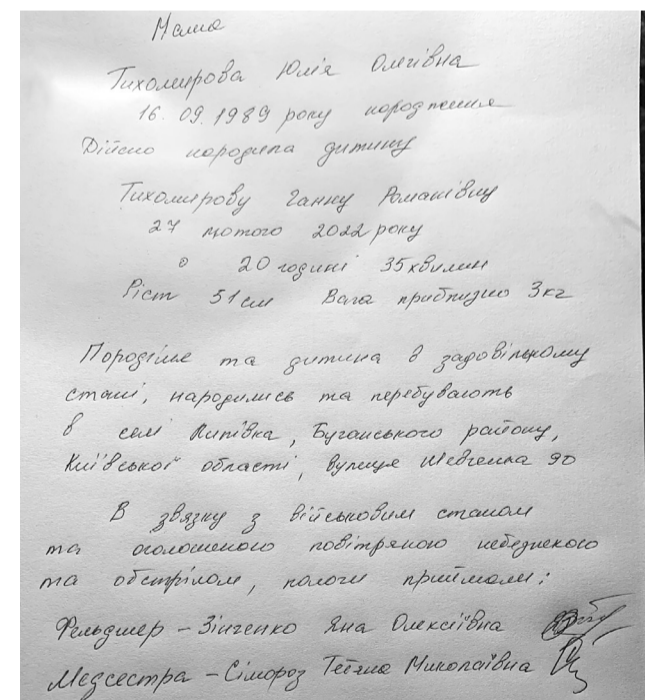 Мама
Тихомирова Юлія Олегівна
16.09.1989 року народження
Дійсно народила дитину
Тихомирову Ганну Романівну
27 лютого 2022 року
о 20 годині 35 хвилин
Ріст 51 см Вага приблизно 3 кг
Породілля та дитина в задовільному
стані, народились та перебувають
в селі Липівка, Бучанського району,
Київської області, вулиця Шевченка 90
В звязку з військовим станом
та оголошеною повітряною небезпекою
та обстрілом, пологи приймали:
Фельдшер – Зінченко Яна Олексіївна
Медсестра – Сімороз Тетяна Миколаївна